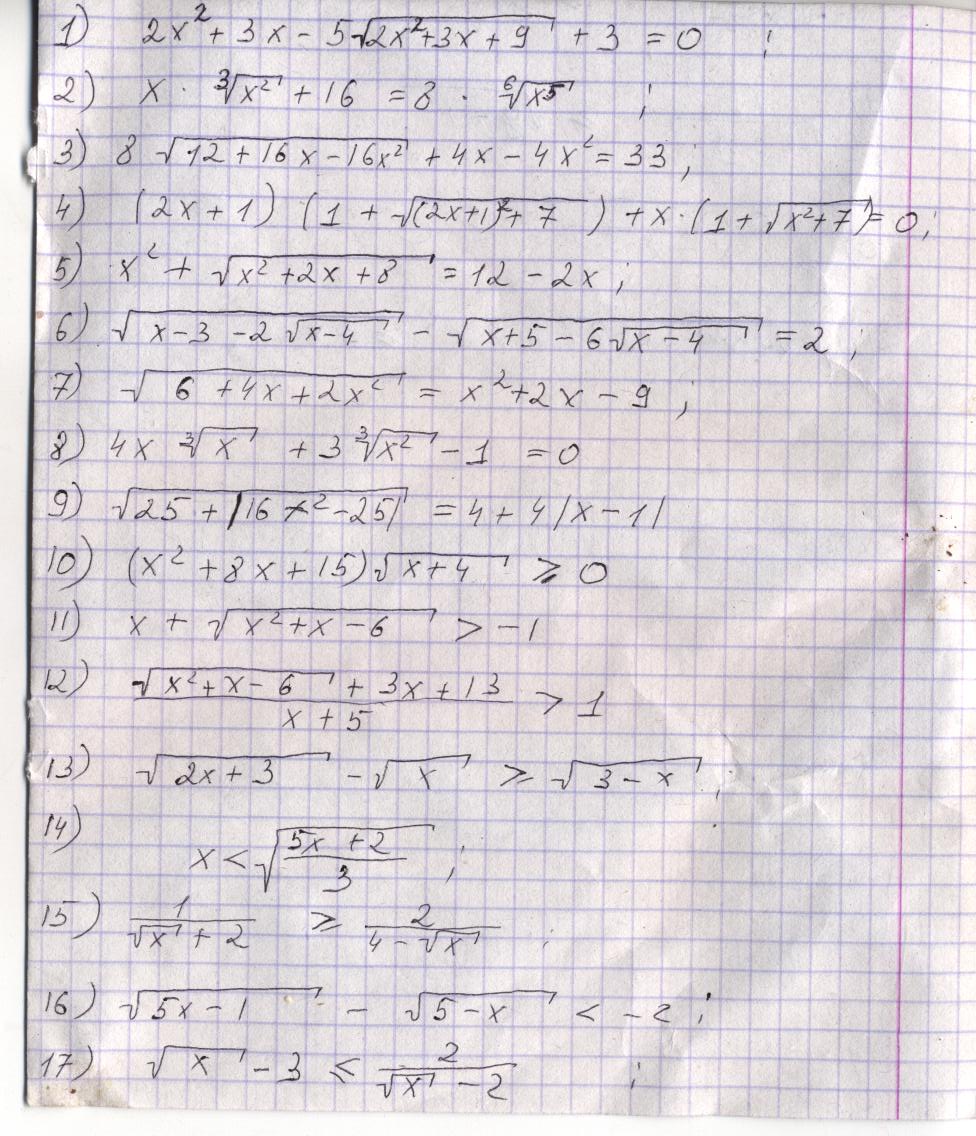 1) 2x² + 3x - 5√(2x²+3x+9) + 3 = 0 ;
2) x · ∛(x²) + 16 = 8 · ⁶√(x⁵) ;
3) 8 √(12+16x-16x²) + 4x - 4x² = 33 ;
4) (2x+1) (1 + √((2x+1)²+7)) + x·(1+√(x²+7)) = 0 ;
5) x² + √(x²+2x+8) = 12 - 2x ;
6) √(x-3-2√(x-4)) - √(x+5-6√(x-4)) = 2 ;
7) √(6+4x+2x²) = x²+2x-9 ;
8) 4x ∛x + 3∛(x²) - 1 = 0
9) √(25+|16x²-25|) = 4+4|x-1|
10) (x²+8x+15)√(x+4) ⩾ 0
11) x + √(x²+x-6) > -1
12) (√(x²+x-6) + 3x+13)/(x+5) > 1
13) √(2x+3) - √x ⩾ √(3-x) ;
14) x < √((5x+2)/3) ;
15) 1/(√x+2) ⩾ 2/(4-√x) ;
16) √(5x-1) - √(5-x) < -2 ;
17) √x - 3 ⩽ 2/(√x-2) ;